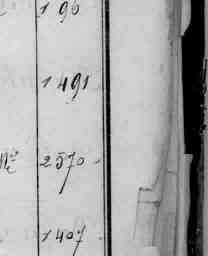 1 90
1 491
N° 2 570
1 407